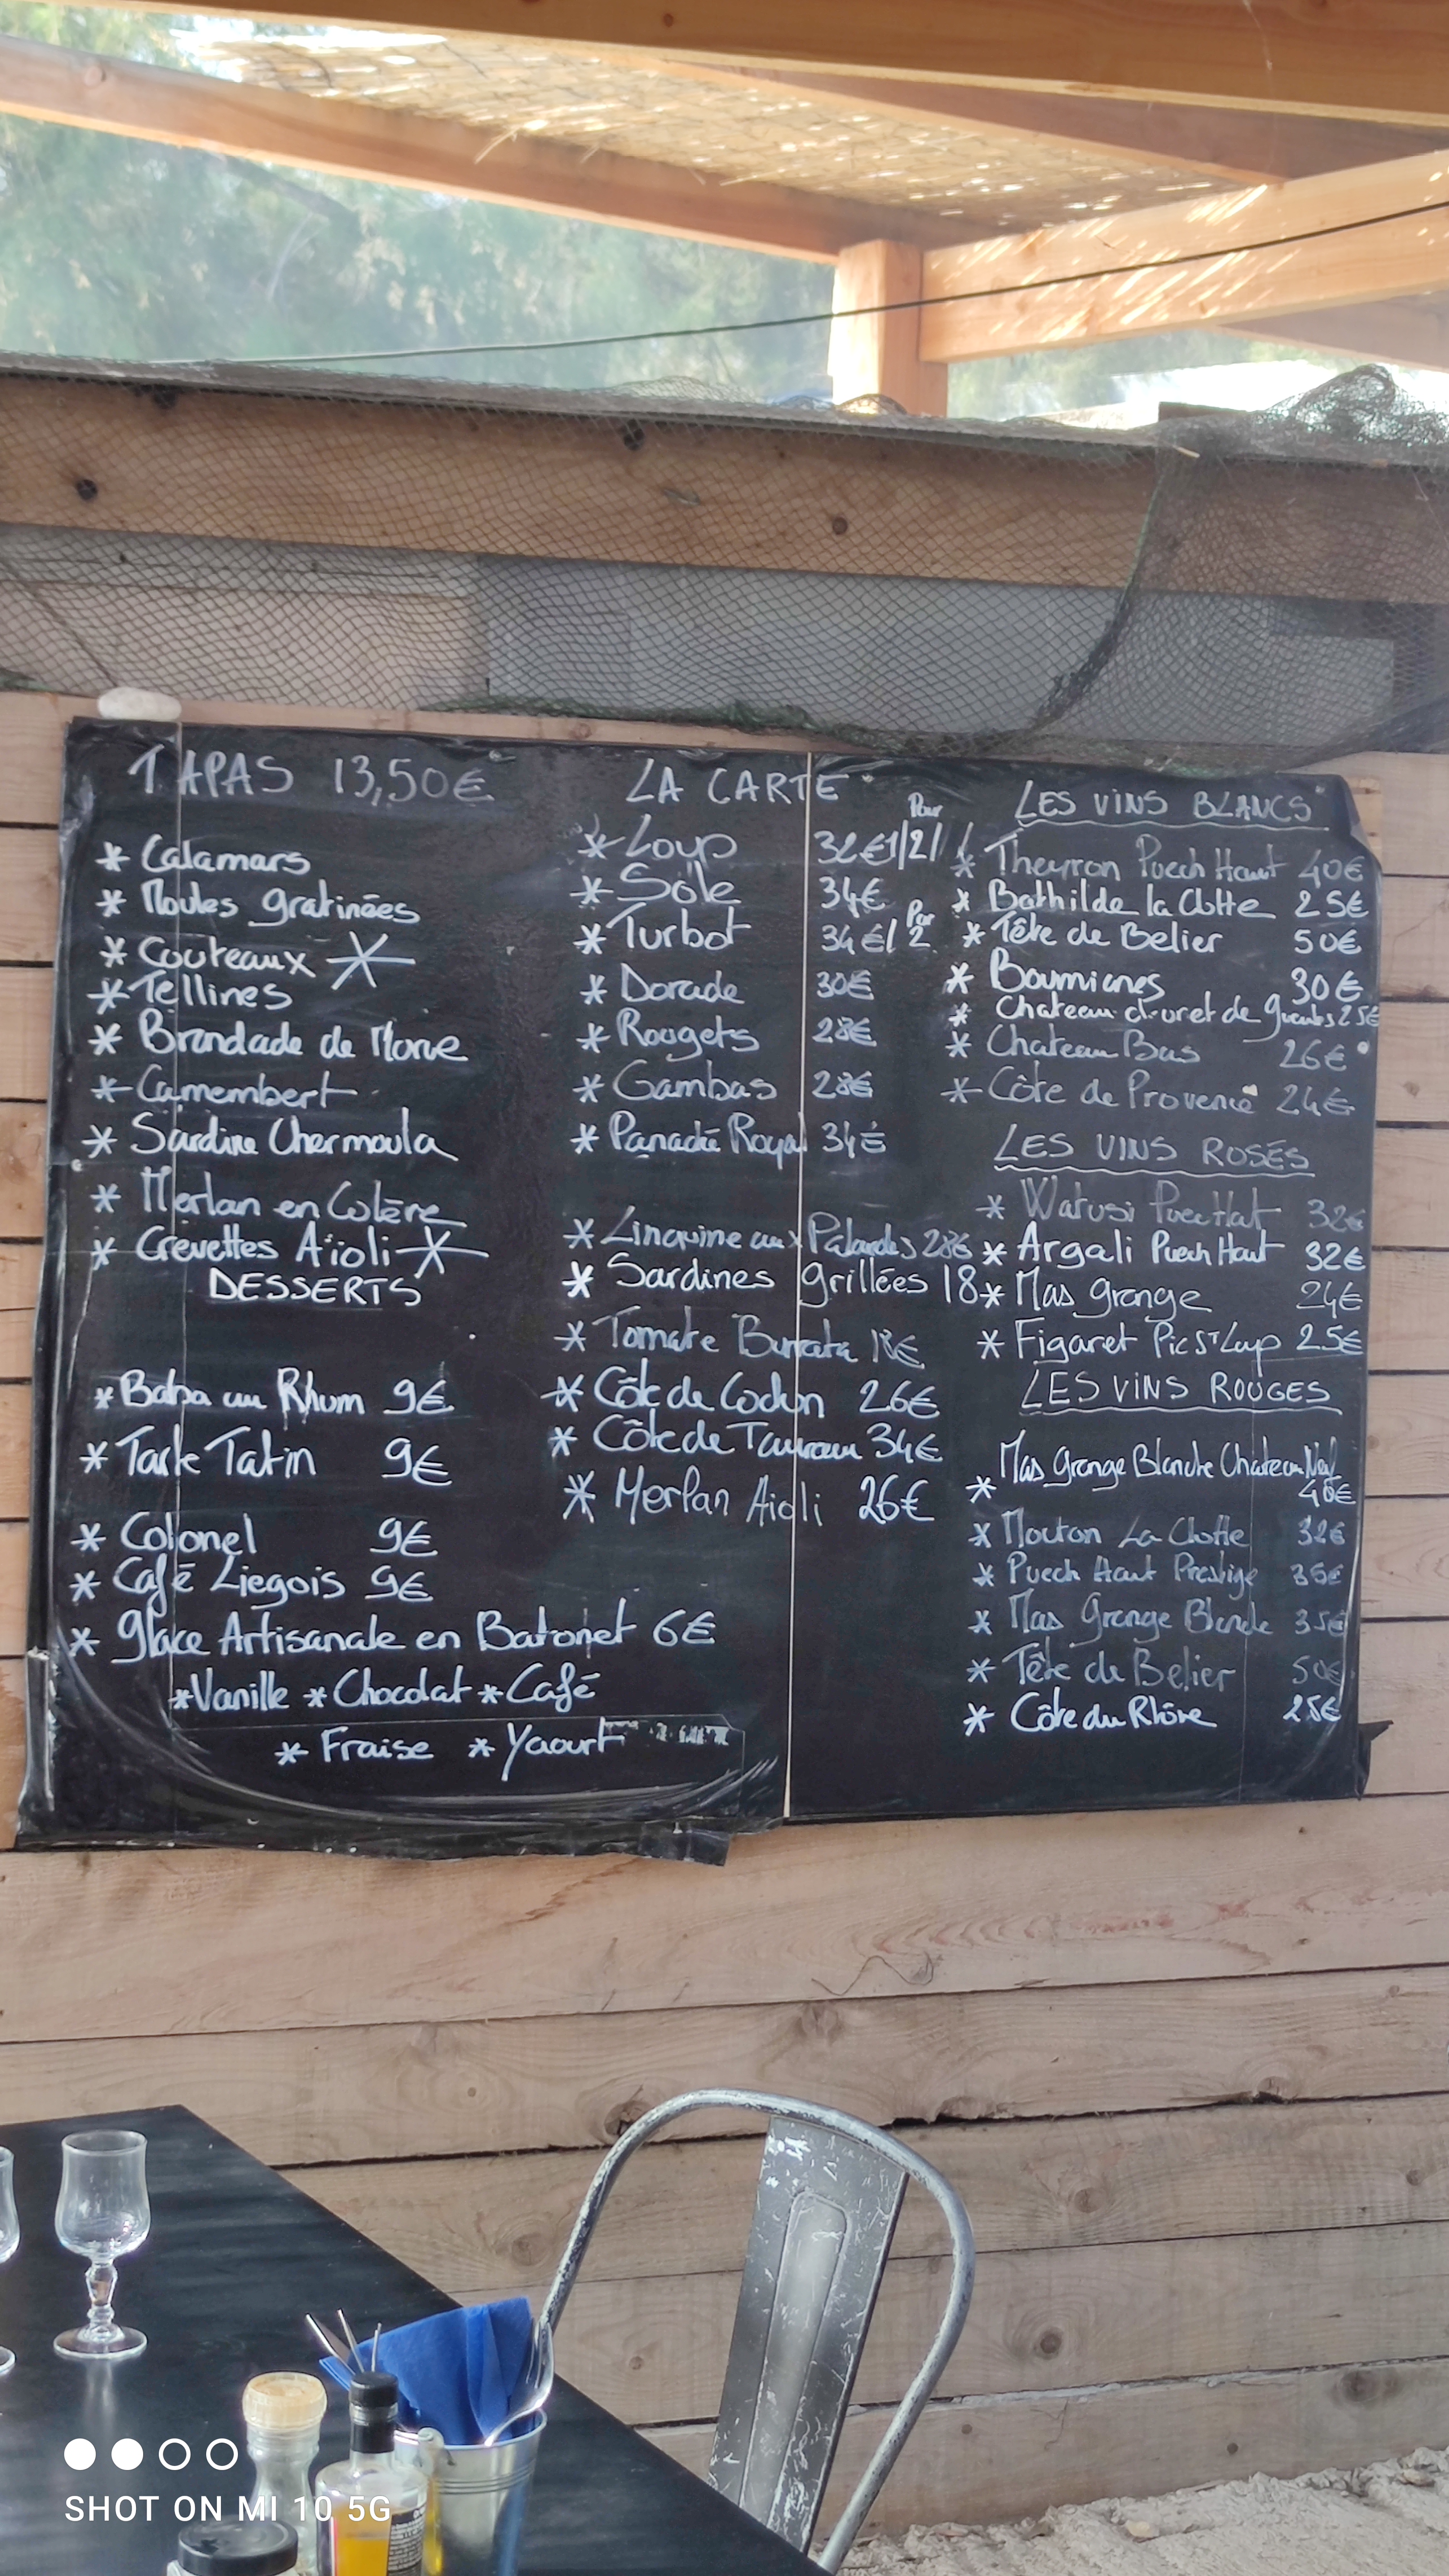 TAPAS 13,50€
* Calamars
* Moules gratinées
* Couteaux *
* Tellines
* Brandade de Morue
* Camembert
* Sardine Chermoula
* Merlan en Colère
* Crevettes Aïoli *
DESSERTS
* Baba au Rhum 9€
* Tarte Tatin 9€
* Colonel 9€
* Café Liegois 9€
* Glace Artisanale en Batonet 6€
* Vanille * Chocolat * Café
* Fraise * Yaourt
LA CARTE
Pour
* Loup 32€ 1/2/
* Sole 34€
* Turbot 34€/ Par 2
* Dorade 30€
* Rougets 28€
* Gambas 28€
* Panaché Royal 34€
* Linguine aux Palourdes 28€
* Sardines grillées 18
* Tomate Burrata 18€
* Côte de Cochon 26€
* Côte de Taureau 34€
* Merlan Aioli 26€
LES VINS BLANCS
* Theyron Puech Haut 40€
* Bathilde la Clotte 25€
* Tête de Belier 50€
* Boumianes 30€
* Chateau d'uret de 25€
* Chateau Bas 26€
* Côte de Provence 24€
LES VINS ROSÉS
* Watusi Puec Hat 32€
* Argali Puech Haut 32€
* Mas grange 24€
* Figaret Pic St Lup 25€
LES VINS ROUGES
Mas grange Blanche Chateau Neuf
* 40€
* Mouton La Clotte 32€
* Puech Haut Prestige 35€
* Mas Grange Blanche 35€
* Tête de Belier 50€
* Côte du Rhône 25€
SHOT ON MI 10 5G